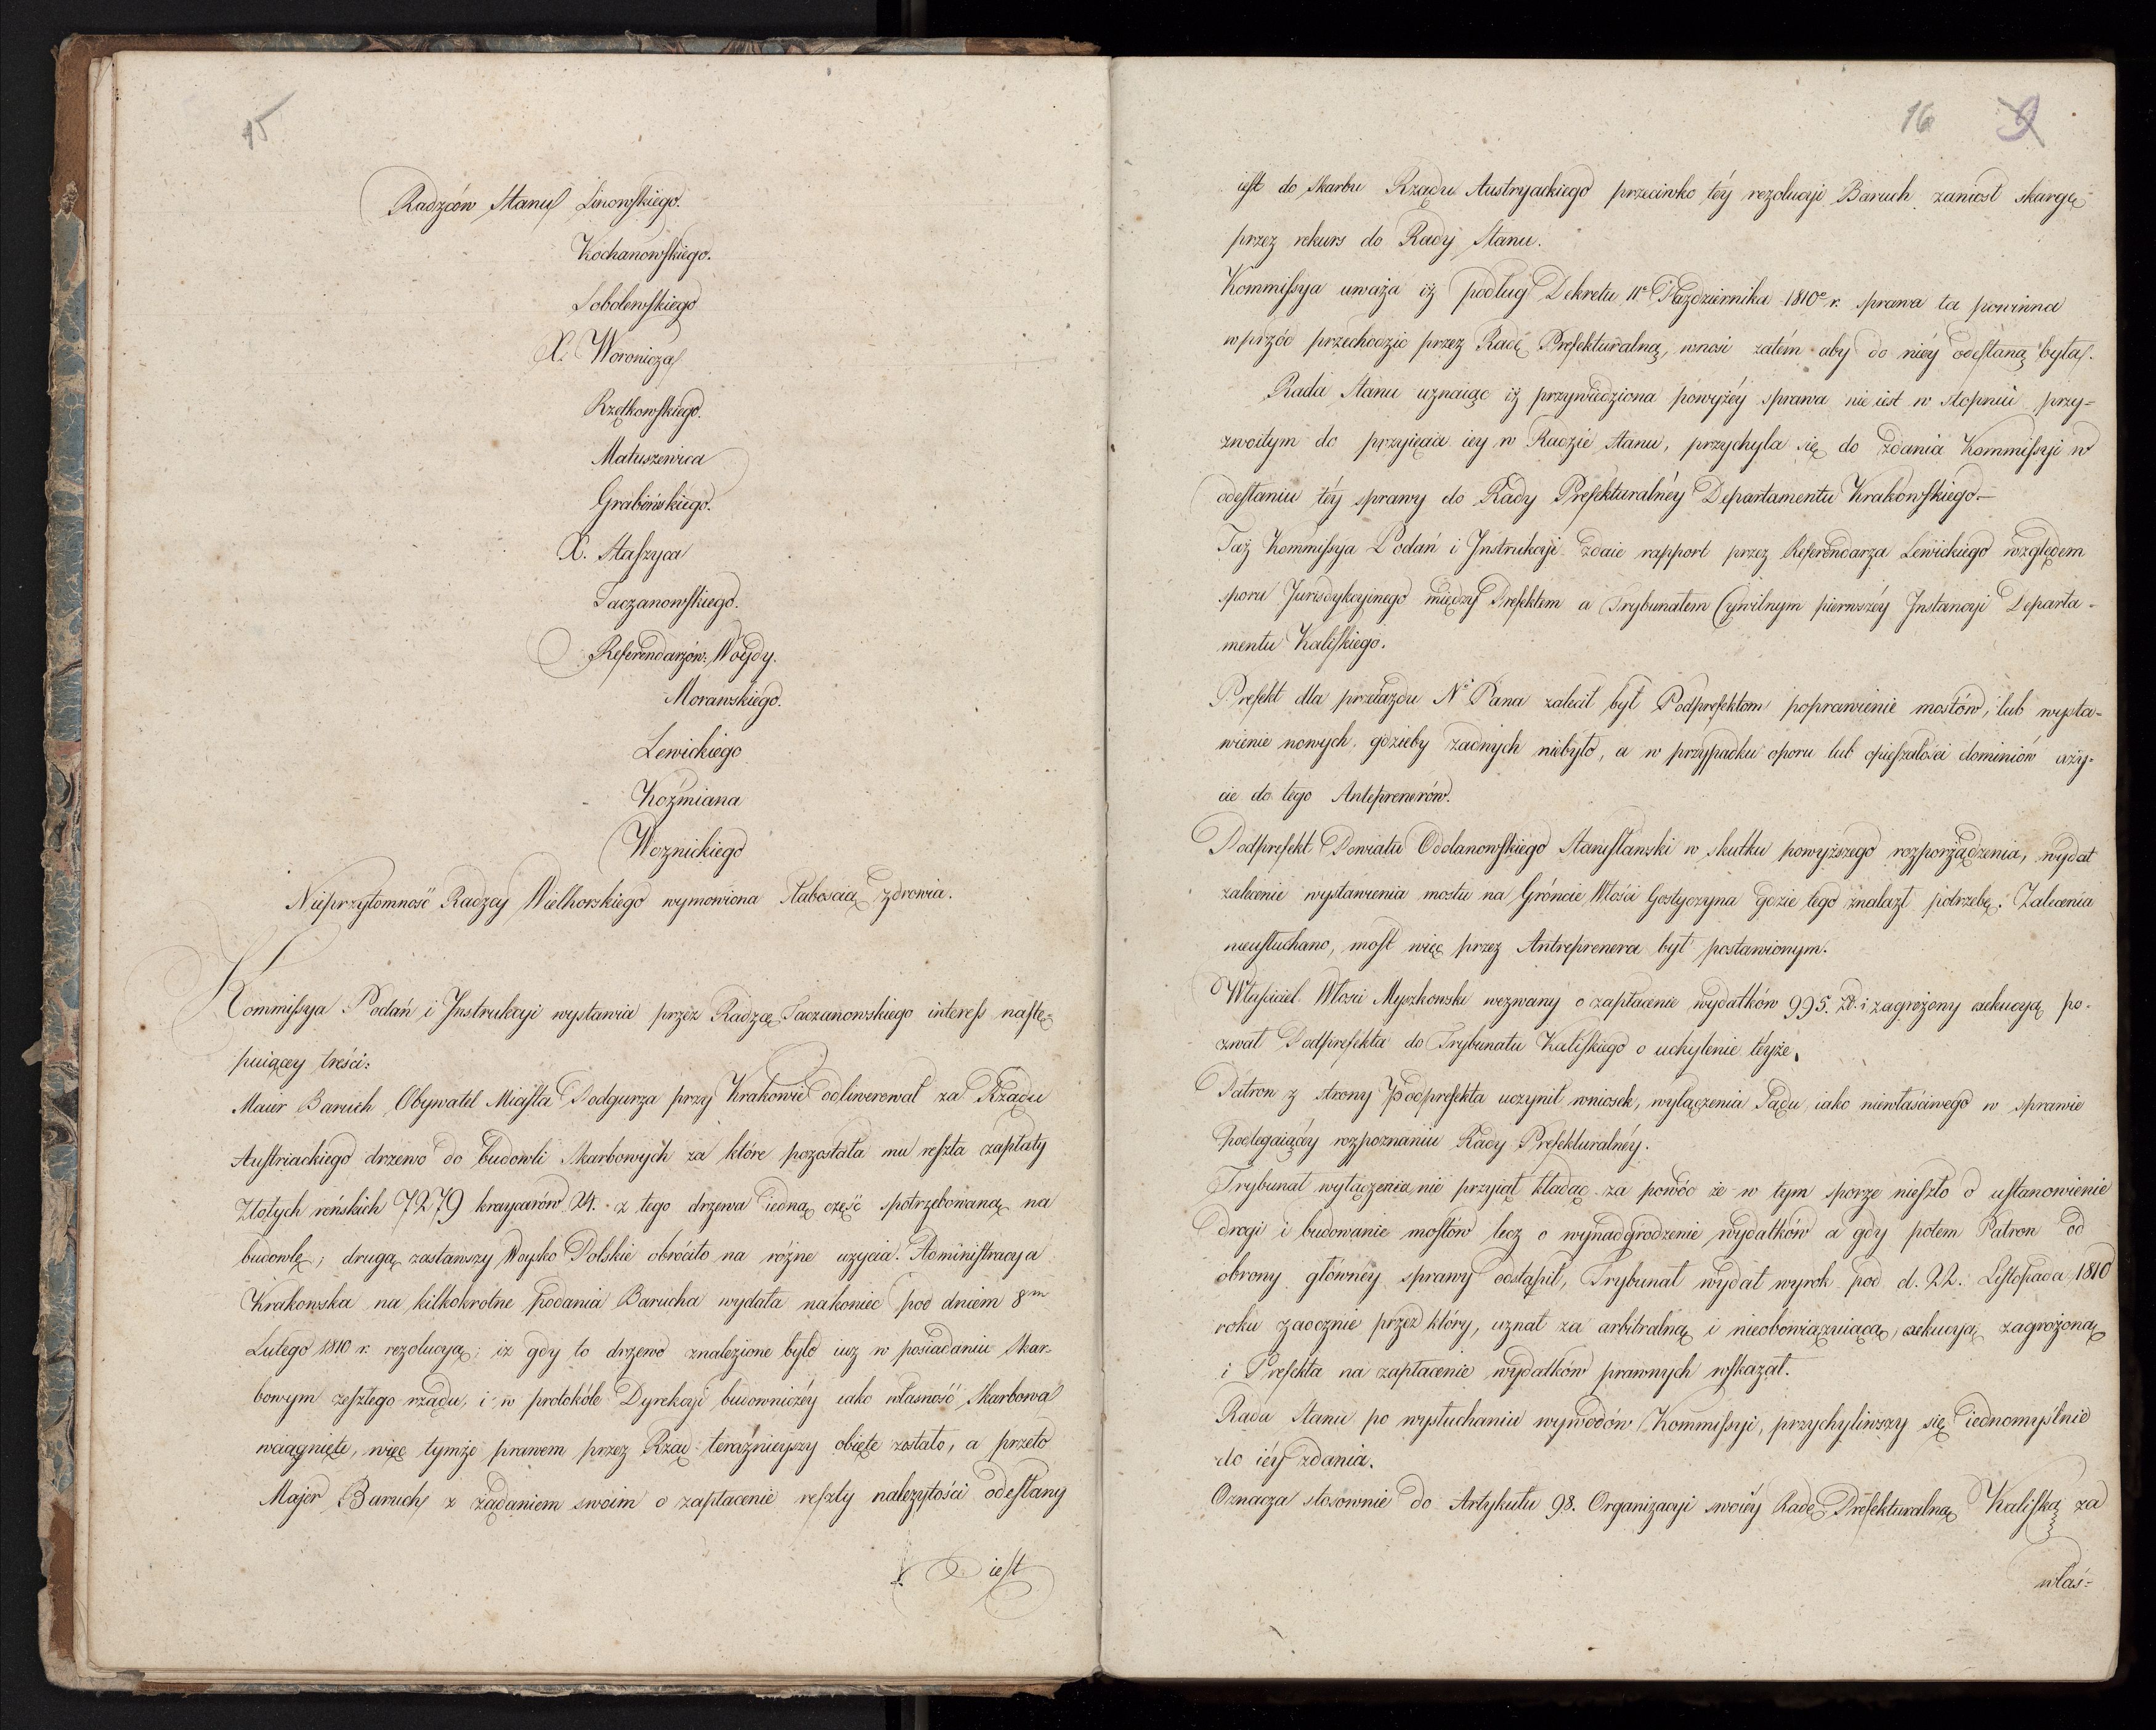 15
Radzców Stanu Linowskiego.
Kochanowskiego.
Sobolewskiego
X. Woronicza
Rzętkowskiego.
Matuszewica
Grabińskiego.
X. Staszyca
Taczanowskiego.
Referendarzów. Woydy.
Morawskiego.
Lewickiego
Koźmiana
Woznickiego
Nieprzytomność Radzcy Wielhorskiego wymowiona słabością zdrowia.
Kommissya Podań i Instrukcyi wystawia przez Radzcę Taczanowskiego interess nastę-
puiącey treści:
Maier Baruch Obywatel Miasta Podgurza przy Krakowie odliwerował za Rządu
Austriackiego drzewo do budowli Skarbowych za które pozostała mu reszta zapłaty
Złotych reńskich 7279 kraycarów 24. z tego drzewa iedną część spotrzebowaną na
budowlę; drugą zastawszy Woysko Polskie obróciło na różne użycia. Administracya
Krakowska na kilkokrotne podania Barucha wydała nakoniec pod dniem 8m
Lutego 1810 r. rezolucyą; iż gdy to drzewo znalezione było iuz w posiadaniu Skar-
bowym zeszłego rządu, i w protokóle Dyrekcyi budowniczéy iako własność Skarbowa
wciągnięte, więc tymże prawem przez Rząd teraźnieyszy obięte zostało, a przeto
Majer Baruch z żądaniem swoim o zapłacenie reszty należytości odesłany
iest
16 9
iest do Skarbu Rządu Austryackiego przeciwko téy rezolucyi Baruch zaniosł skargę
przez rekurs do Rady Stanu.
Kommissya uważa iż podług Dekretu 11o Października 1810o r. sprawa ta powinna
wprzód przechodzić przez Radę Prefekturalną, wnosi zatém aby do niéy odesłaną była.
Rada Stanu uznaiąc iż przywiedziona powyżéy sprawa nie iest w stopniu przy-
zwoitym do przyięcia iey w Radzie Stanu, przychyla się do zdania Kommissyi w
odesłaniu téy sprawy do Rady Prefekturalnéy Departamentu Krakowskiego.-
Taż Kommissya Podań i Instrukcyi zdaie rapport przez Referendarza Lewickiego względem
sporu Jurisdykcyinego między Prefektem a Trybunałem Cywilnym pierwszéy Instancyi Departa-
mentu Kaliskiego.
Prefekt dla przeiazdu No Pana zalecił był Podprefektom poprawienie mostów, lub wysta-
wienie nowych, gdzieby żadnych niebyło, a w przypadku oporu lub opieszałości dominiów uży-
cie do tego Antreprenerów.
Podprefekt Powiatu Odolanowskiego Stanisławski w skutku powyższego rozporządzenia, wydał
zalecenie wystawienia mostu na Gróncie Włości Gostyczyna gdzie tego znalazł potrzebę. Zalecenia
nieusłuchano, most więc przez Antreprenera był postawionym.
Właściciel Włosci Myszkowski wezwany o zapłacenie wydatków 995. zł. i zagrożony exekucyą po-
zwał Podprefekta do Trybunału Kaliskiego o uchylenie téyże.
Patron z strony Podprefekta uczynił wniosek, wyłączenia Sądu iako niewłaściwego w sprawie
podlegaiącéy rozpoznaniu Rady Prefekturalnéy.
Trybunał wyłączenia nie przyiął kładąc za powód że w tym sporze nieszło o ustanowienie
drogi i budowanie mostów lecz o wynadgrodzenie wydatków a gdy potem Patron od
obrony główney sprawy odstąpił, Trybunał wydał wyrok pod d. 22. Listopada 1810
roku zaocznie przez który, uznał za arbitralną i nieobowiązuiącą, exekucyą zagrożoną
i Prefekta na zapłacenie wydatków prawnych wskazał.
Rada Stanu po wysłuchaniu wywodów Kommissyi, przychyliwszy się iednomyślnie
do iéy zdania.
Oznacza stosownie do Artykułu 98. Organizacyi swoiéy Radę Prefekturalną Kaliską za
właś-